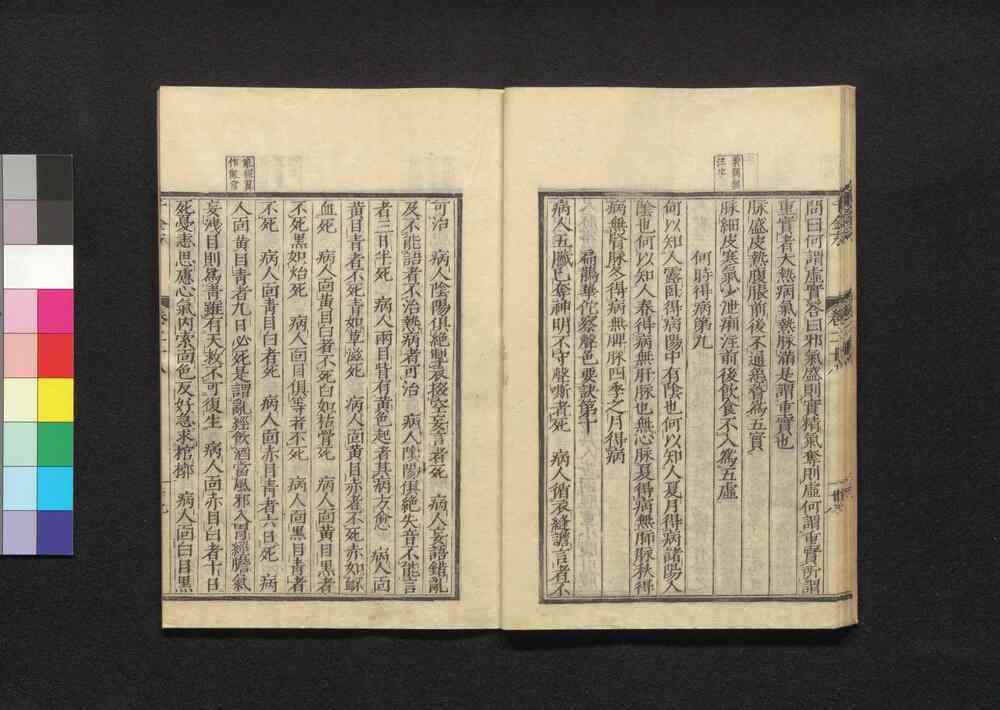 問曰何謂虛實荅曰邪氣盛則實精氣奪則虛何謂重實所謂
重實者大熱病氣熱脉滿是謂重實也
脉盛皮熱腹脹前後不通悶瞀爲五實
脉細皮寒氣少泄痢注前後飲食不入爲五虛
何時得病第九
何以知人露臥得病陽中有陰也何以知人夏月得病諸陽入
陰也何以知人春得病無肝脉也無心脉夏得病無肺脉秋得
病無腎脉冬得病無脾脉四季之月得病
扁鵲華佗察聲色要訣第十
病人五臟已奪神明不守聲嘶者死　病人循衣縫譫言者不
可治　病人陰陽俱絕掣衣掇空妄言者死　病人妄語錯亂
及不能語者不治熱病者可治　病人陰陽俱絕失音不能言
者三日半死　病人兩目眥有黃色起者其病方愈　病人面
黃目青者不死青如草滋死　病人面黃目赤者不死赤如衃
血死　病人面黃目白者不死白如枯骨死　病人面黃目黑者
不死黑如炲死　病人面目俱等者不死　病人面黑目青者
不死　病人面青目白者死　病人面赤目青者六日死　病
人面黃目青者九日必死是謂亂經飲酒當風邪入胃經膽氣
妄洩目則爲青雖有天救不可復生　病人面赤目白者十日
死憂恚思慮心氣內索面色反好急求棺槨　病人面白目黑